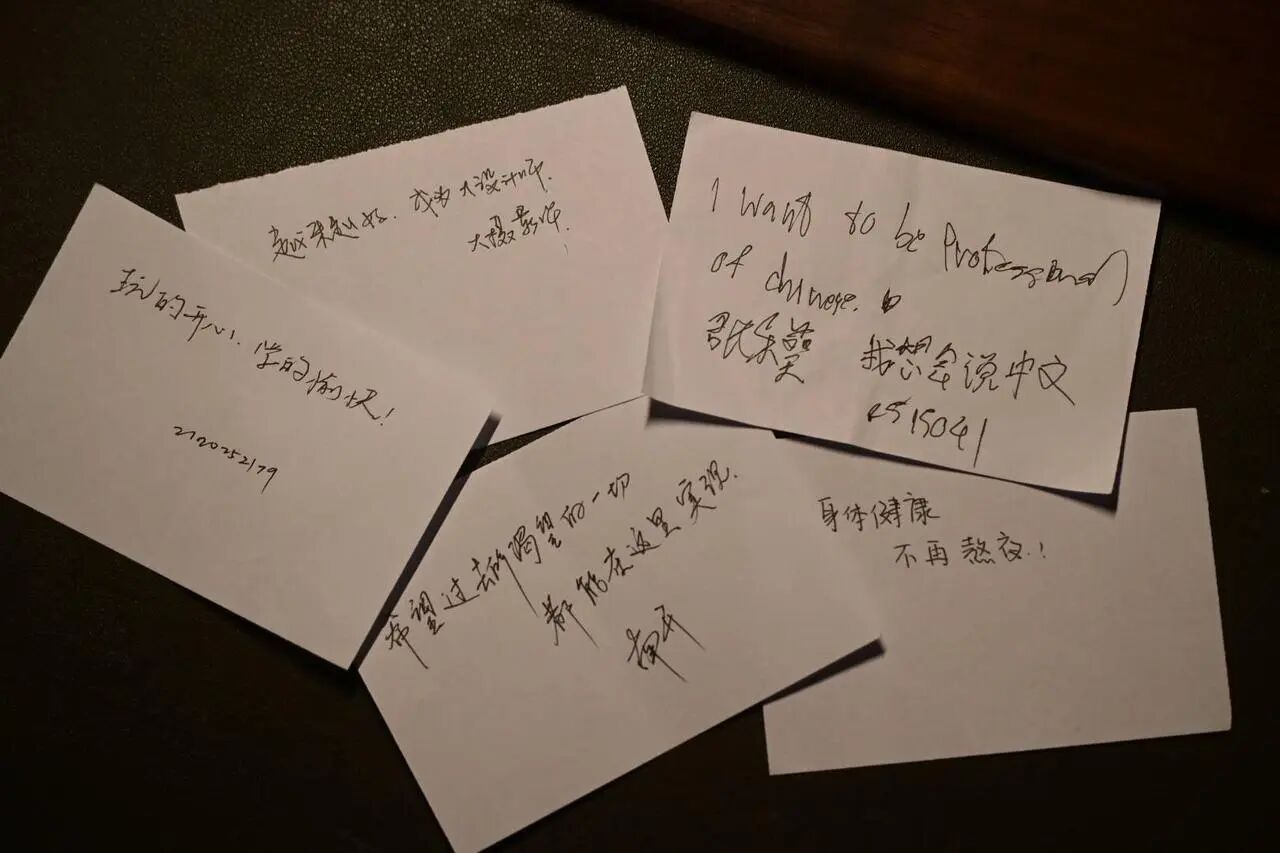 越来越好、成为大设计师、
大摄影师!
I want to be Professional
of chinese.
我想会说中文
2515041
玩的开心、学的愉快!
2120252179
希望过去所渴望的一切
都能在这里实现.
身体健康
不再熬夜.!